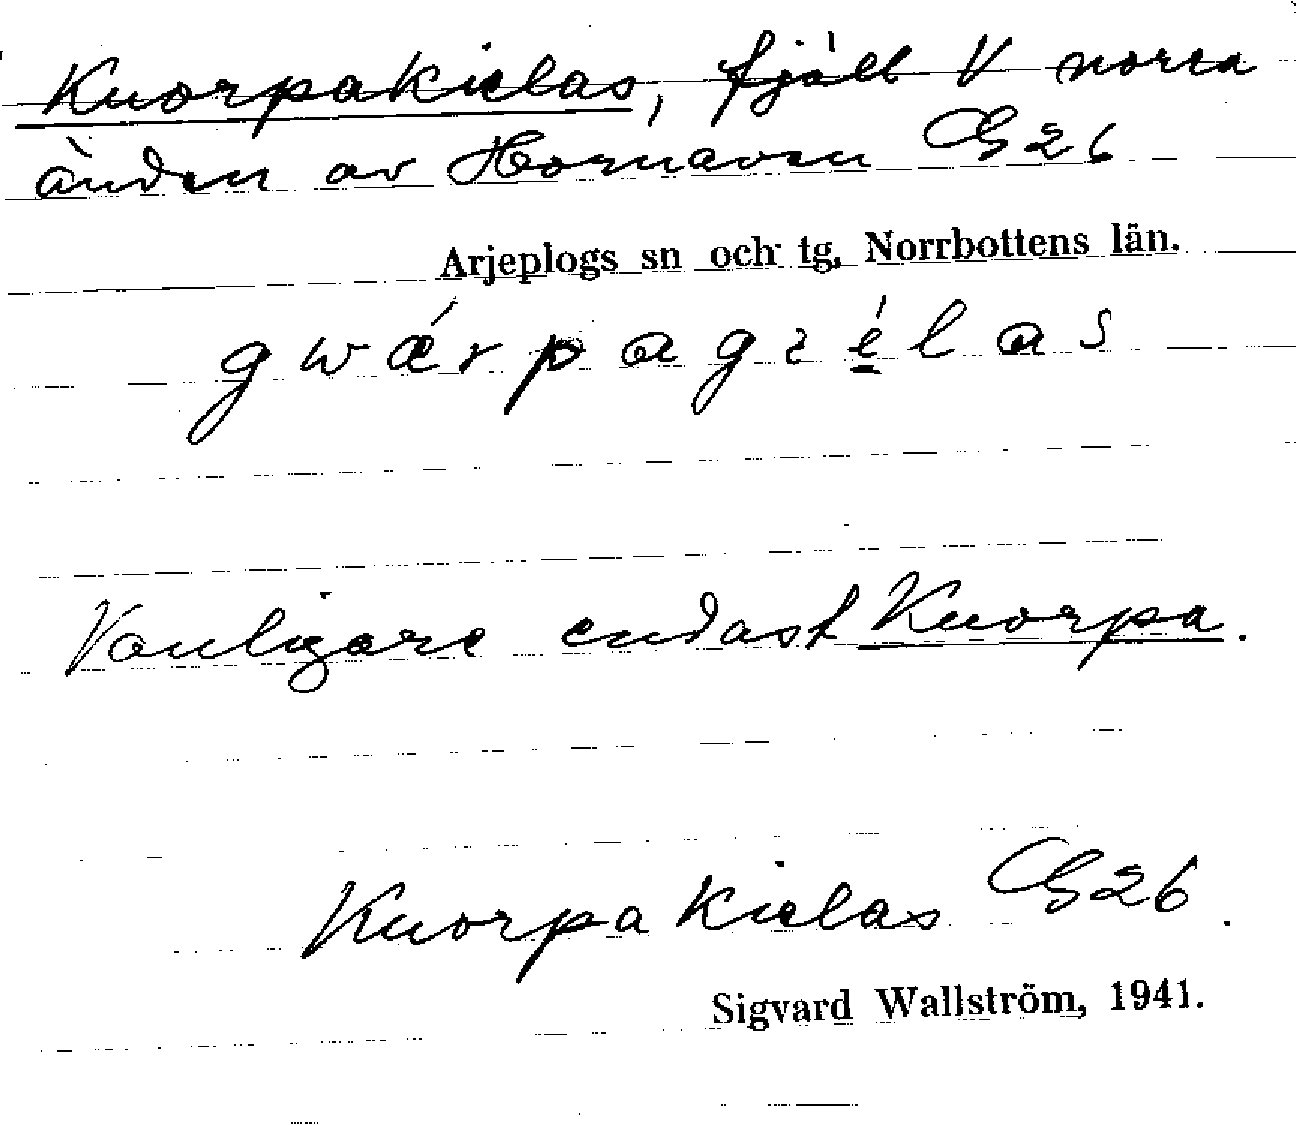 Kuorpakielas, fjäll V norra
änden av Hornavan GS 26
Arjeplogs sn och tg, Norrbottens län.
g w ǽ r p a g i é̱ l a s
Vanligare endast Kuorpa.
Kuorpakielas GS 26.
Sigvard Wallström, 1941.